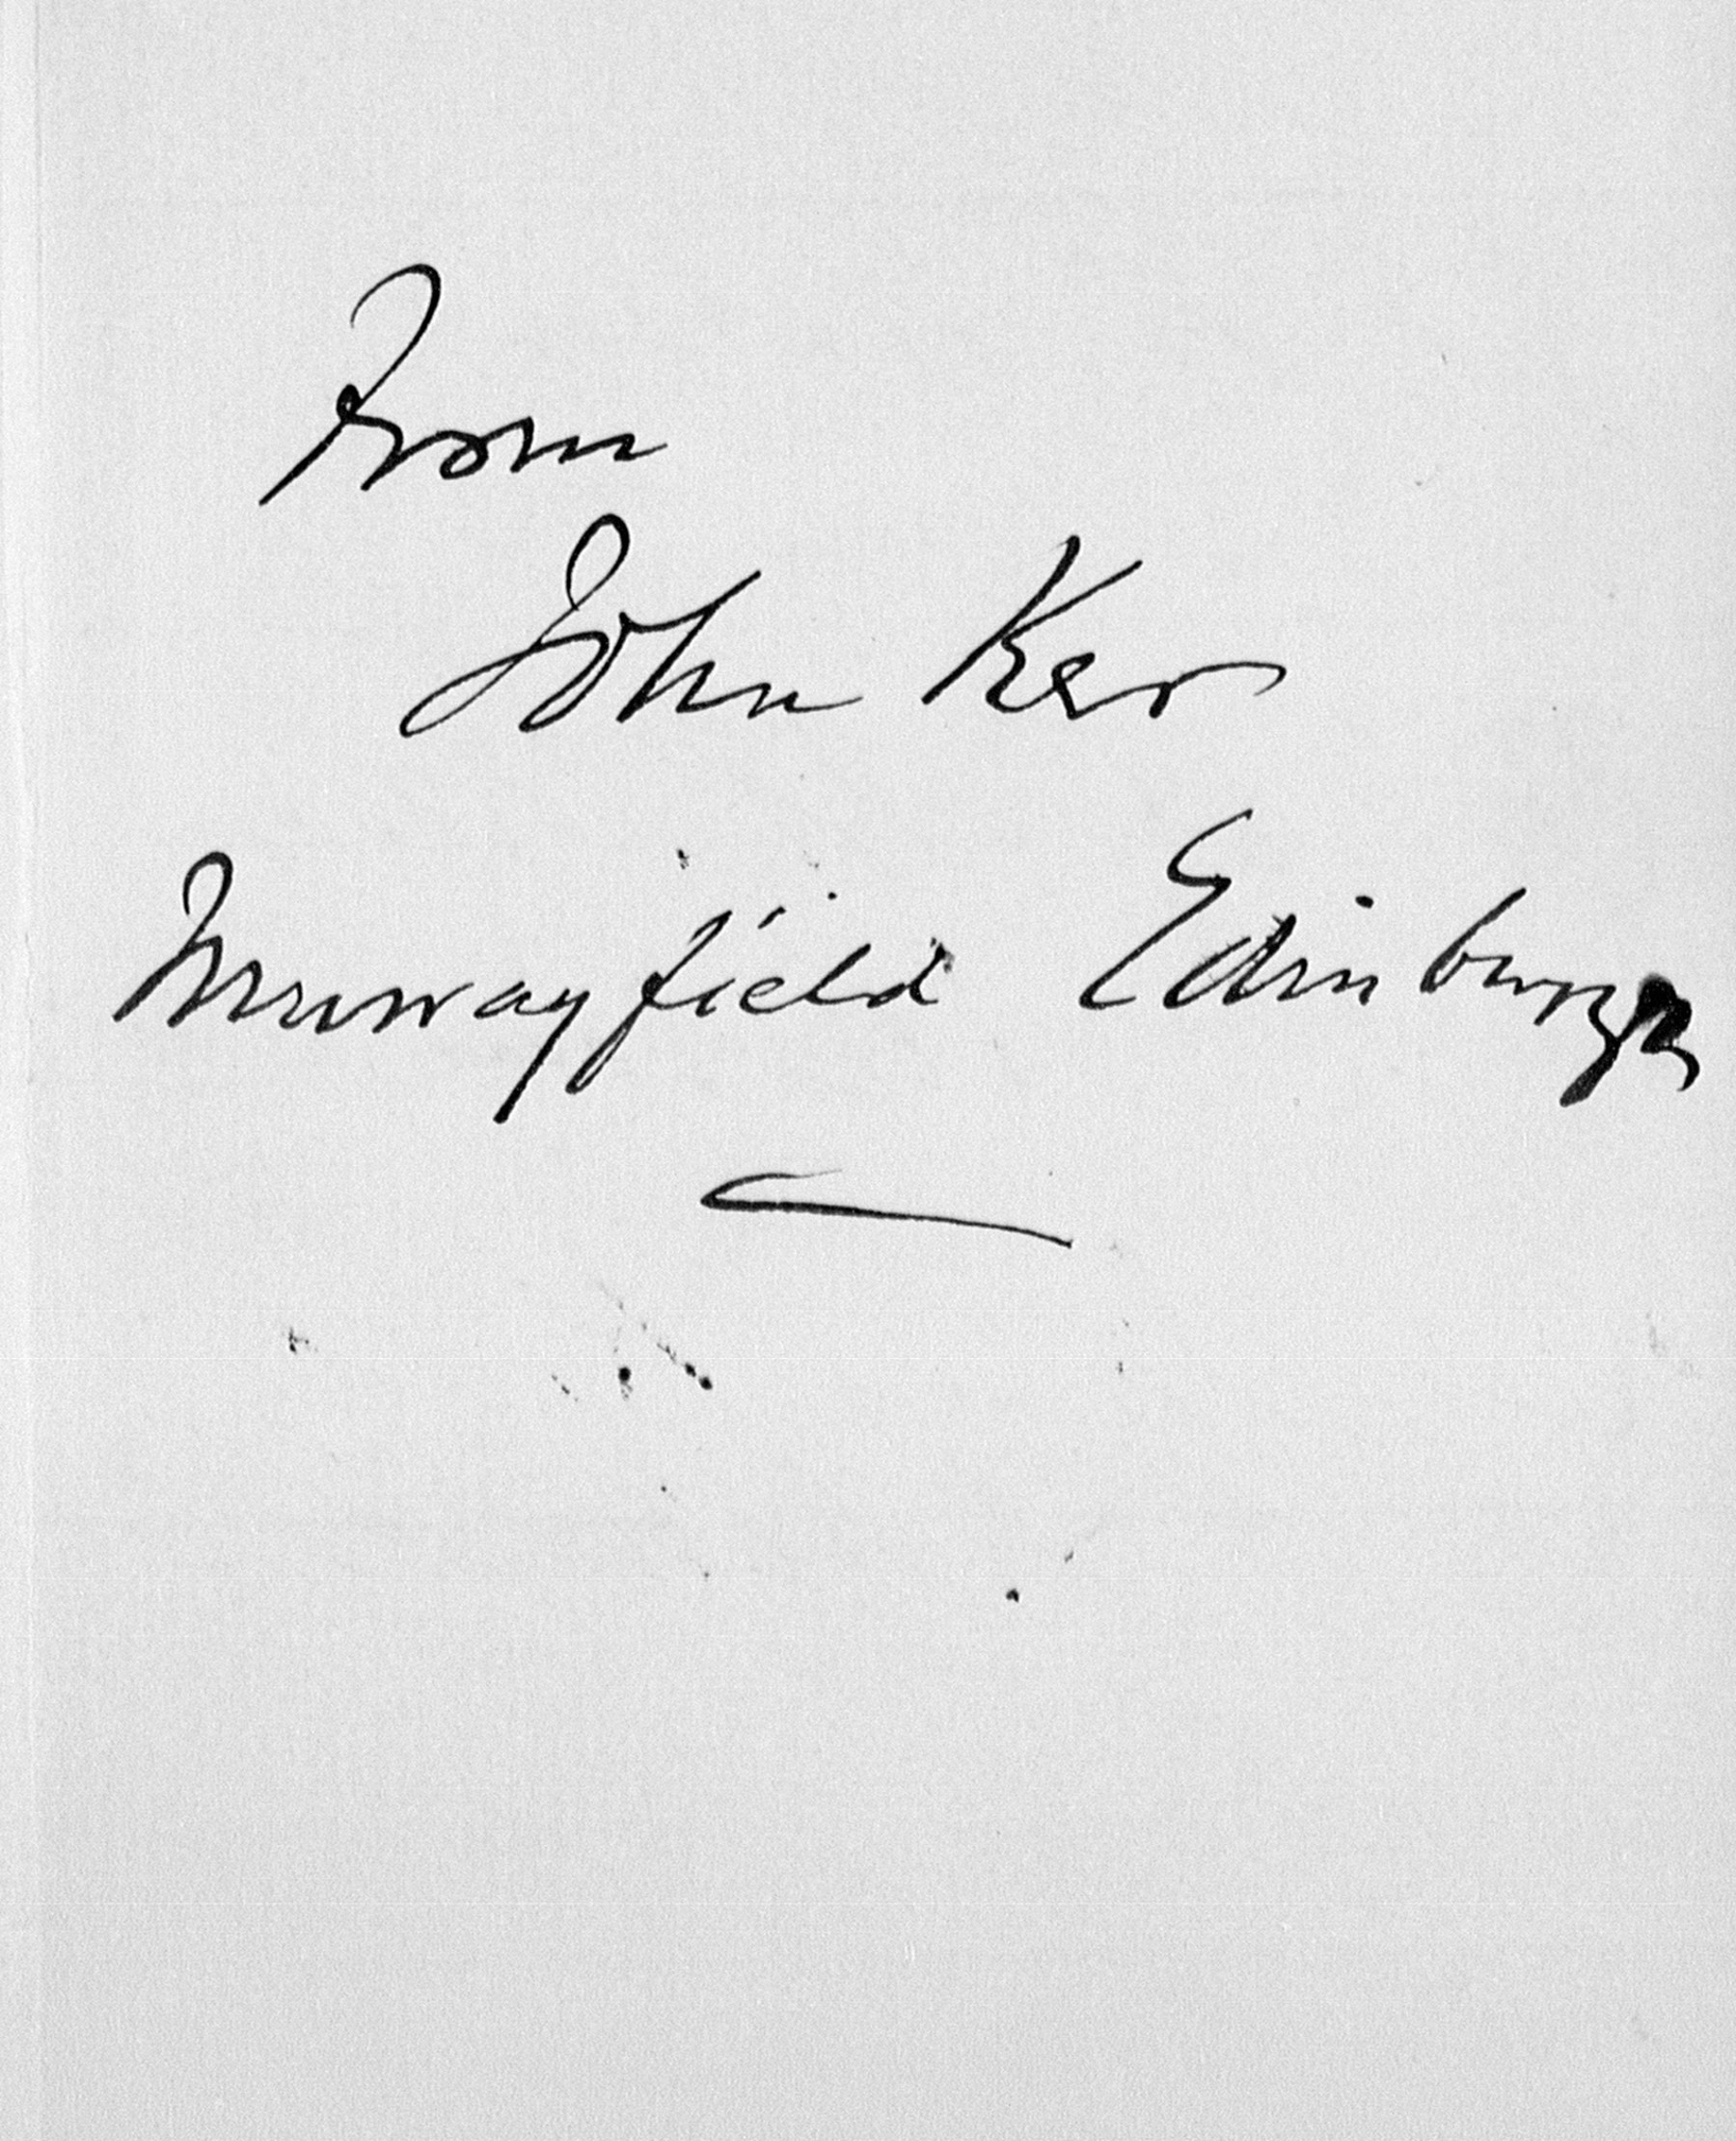 From
John Ker
Murrayfield Edinburgh